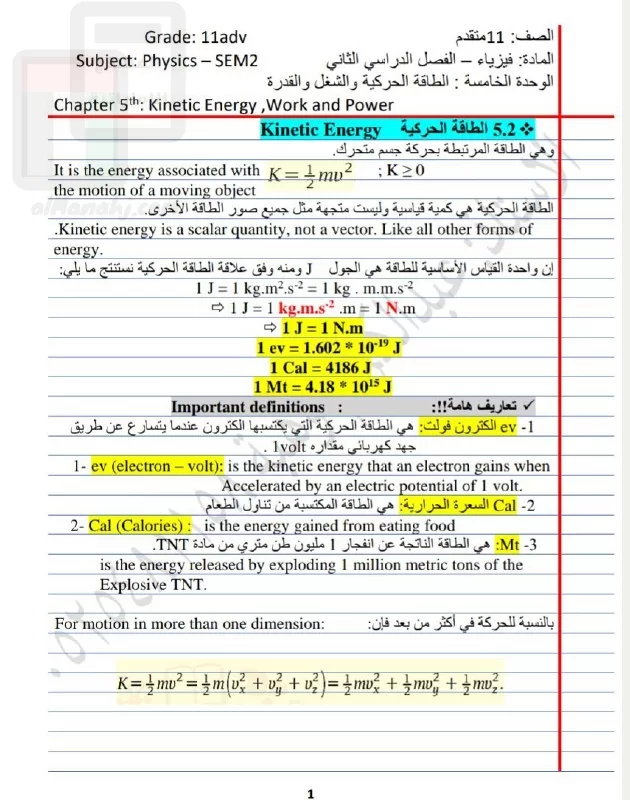 Grade: 11adv الصف: 11متقدم
Subject: Physics – SEM2 المادة: فيزياء – الفصل الدراسي الثاني
الوحدة الخامسة : الطاقة الحركية والشغل والقدرة
Chapter 5th: Kinetic Energy ,Work and Power
❖ 5.2 الطاقة الحركية Kinetic Energy
وهي الطاقة المرتبطة بحركة جسم متحرك.
It is the energy associated with K = ½ mv² ; K ≥ 0
the motion of a moving object
الطاقة الحركية هي كمية قياسية وليست متجهة مثل جميع صور الطاقة الأخرى.
.Kinetic energy is a scalar quantity, not a vector. Like all other forms of
energy.
إن واحدة القياس الاساسية للطاقة هي الجول J ومنه وفق علاقة الطاقة الحركية نستنتج ما يلي:
1 J = 1 kg.m².s⁻² = 1 kg . m.m.s⁻²
⇨ 1 J = 1 kg.m.s⁻² .m = 1 N.m
⇨ 1 J = 1 N.m
1 ev = 1.602 * 10⁻¹⁹ J
1 Cal = 4186 J
1 Mt = 4.18 * 10¹⁵ J
✓ تعاريف هامة!!: Important definitions :
1- ev الكترون فولت: هي الطاقة الحركية التي يكتسبها الكترون عندما يتسارع عن طريق
جهد كهربائي مقداره 1volt .
1- ev (electron – volt): is the kinetic energy that an electron gains when
Accelerated by an electric potential of 1 volt.
2- Cal السعرة الحرارية: هي الطاقة المكتسبة من تناول الطعام
2- Cal (Calories) : is the energy gained from eating food
3- Mt: هي الطاقة الناتجة عن انفجار 1 مليون طن متري من مادة TNT.
is the energy released by exploding 1 million metric tons of the
Explosive TNT.
For motion in more than one dimension: بالنسبة للحركة في أكثر من بعد فإن:
K = ½ mv² = ½ m(v²ₓ + v²ᵧ + v²_z) = ½ mv²ₓ + ½ mv²ᵧ + ½ mv²_z.
1